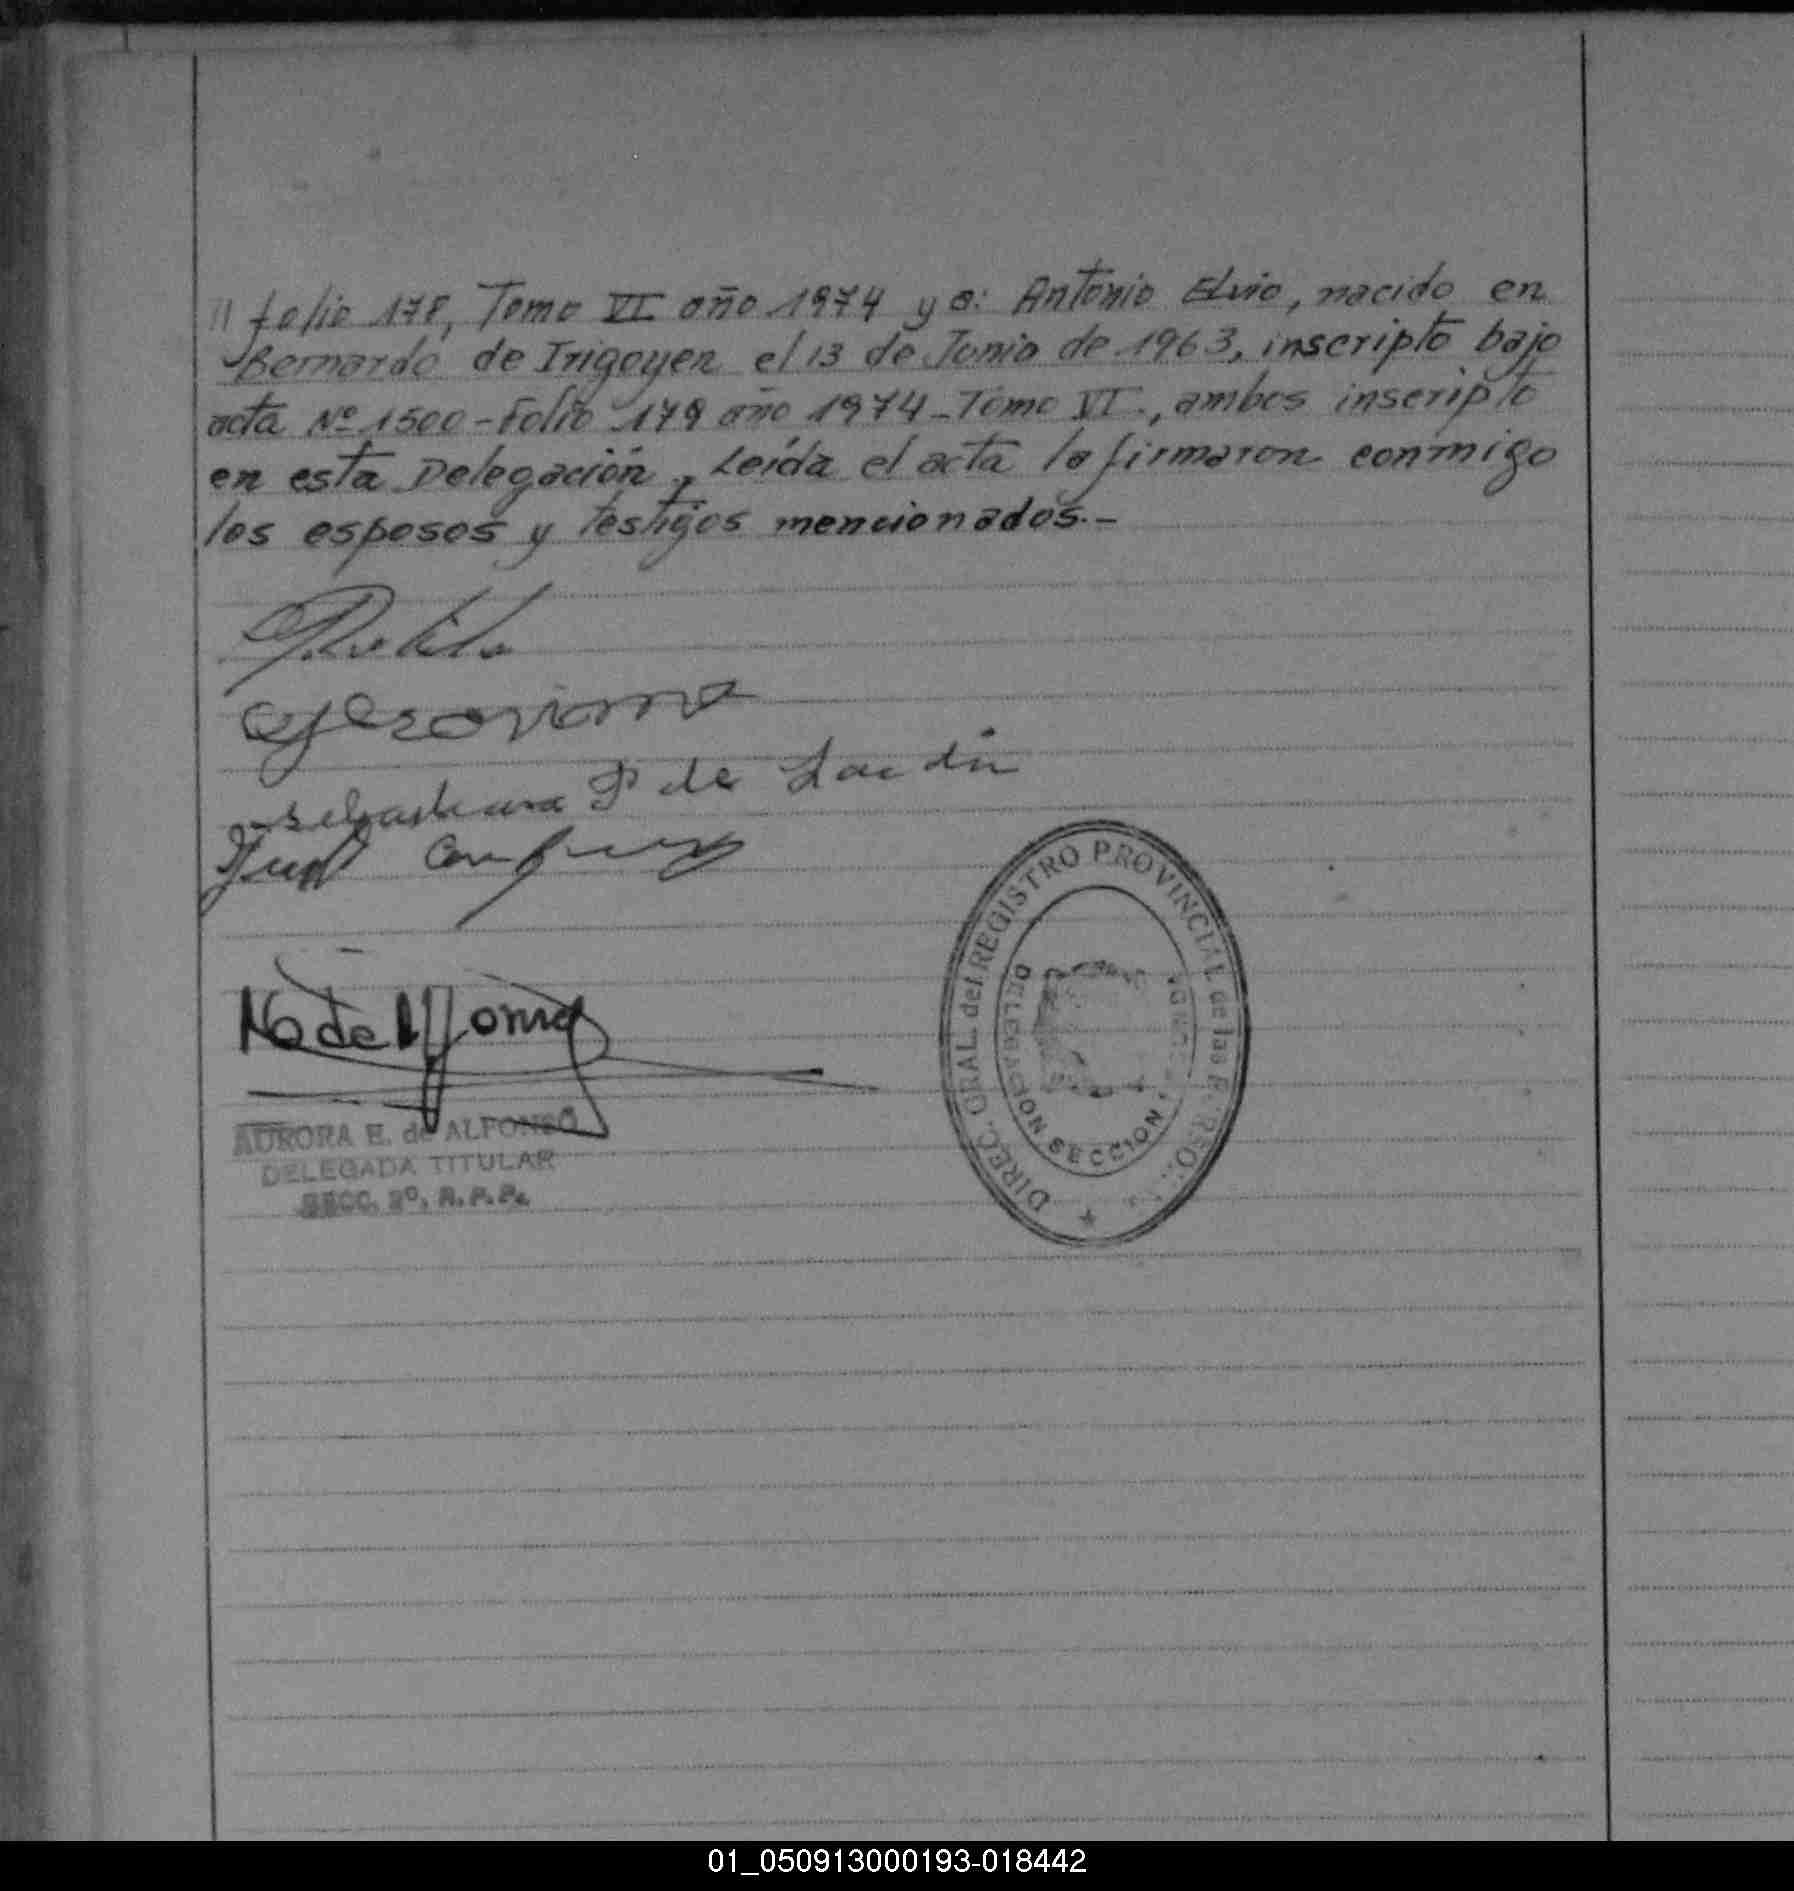 // folio 178, Tomo VI año 1974 y a: Antonio Elvio, nacido en
Bernardo de Irigoyen el 13 de Junio de 1963, inscripto bajo
acta Nº 1500 - Folio 179 año 1974 - Tomo VI., ambos inscripto
en esta Delegación, Leída el acta la firmaron conmigo
los esposos y testigos mencionados.-
Sebastiana P de
AURORA E. de ALFONSO
DELEGADA TITULAR
SECC. 2º. R. P. Ps.
DIREC. GRAL. del REGISTRO PROVINCIAL de las
DELEGACION SECCION
01_050913000193-018442